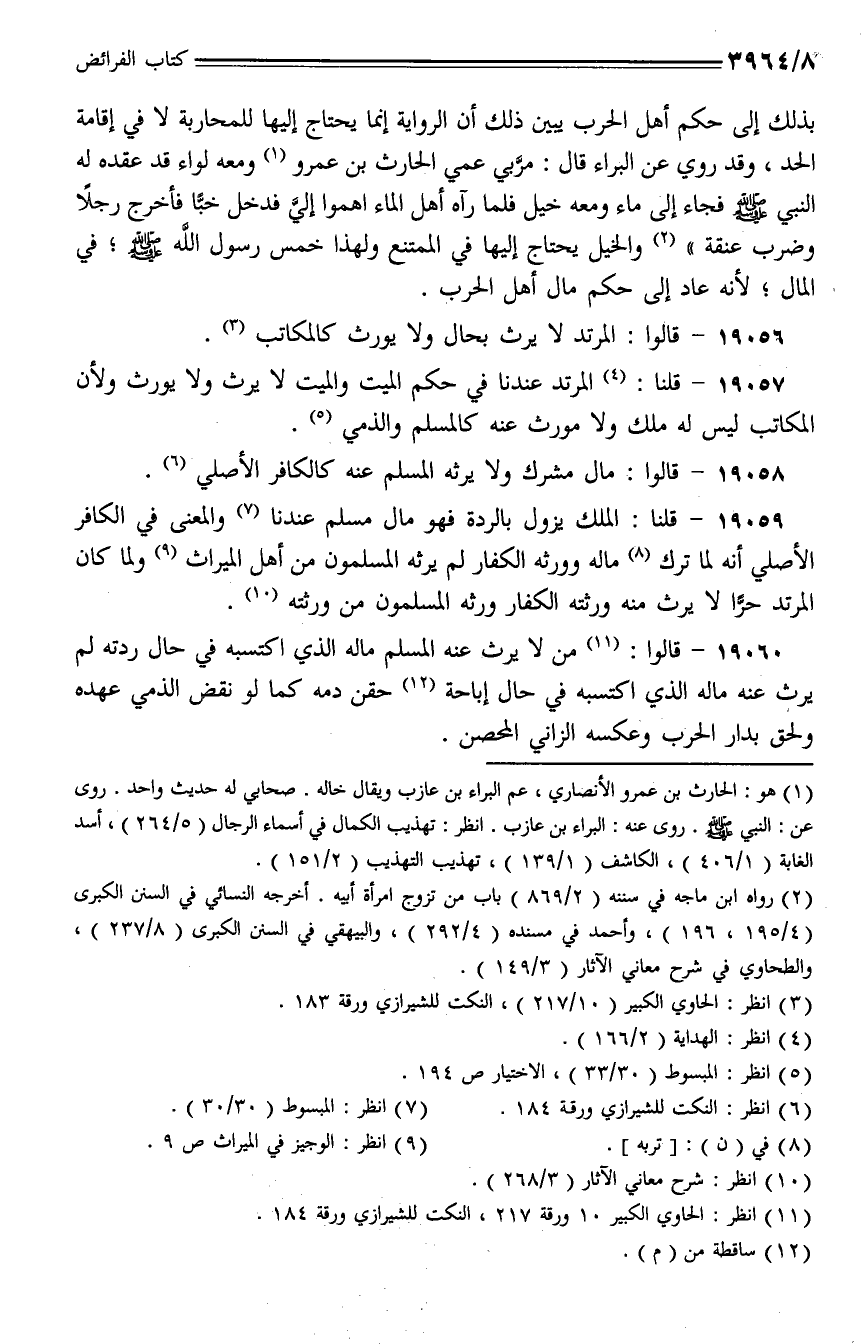 ٣٩٦٤/٨ كتاب الفرائض
بذلك إلى حكم أهل الحرب يبين ذلك أن الرواية إنما يحتاج إليها للمحاربة لا في إقامة
الحد ، وقد روي عن البراء قال : مرَّبي عمي الحارث بن عمرو (١) ومعه لواء قد عقده له
النبي ﷺ فجاء إلى ماء ومعه خيل فلما رآه أهل الماء اهموا إليَّ فدخل خبًّا فأخرج رجلًا
وضرب عنقة » (٢) والخيل يحتاج إليها في الممتنع ولهذا خمس رسول اللَّه ﷺ ؛ في
المال ؛ لأنه عاد إلى حكم مال أهل الحرب .
١٩٠٥٦ – قالوا : المرتد لا يرث بحال ولا يورث كالمكاتب (٣) .
١٩٠٥٧ – قلنا : (٤) المرتد عندنا في حكم الميت والميت لا يرث ولا يورث ولأن
المكاتب ليس له ملك ولا مورث عنه كالمسلم والذمي (٥) .
١٩٠٥٨ – قالوا : مال مشرك ولا يرثه المسلم عنه كالكافر الأصلي (٦) .
١٩٠٥٩ – قلنا : الملك يزول بالردة فهو مال مسلم عندنا (٧) والمعنى في الكافر
الأصلي أنه لما ترك (٨) ماله وورثه الكفار لم يرثه المسلمون من أهل الميراث (٩) ولما كان
المرتد حرًّا لا يرث منه ورثته الكفار ورثه المسلمون من ورثته (١٠) .
١٩٠٦٠ – قالوا : (١١) من لا يرث عنه المسلم ماله الذي اكتسبه في حال ردته لم
يرث عنه ماله الذي اكتسبه في حال إباحة (١٢) حقن دمه كما لو نقض الذمي عهده
ولحق بدار الحرب وعكسه الزاني المحصن .
(١) هو : الحارث بن عمرو الأنصاري ، عم البراء بن عازب ويقال خاله . صحابي له حديث واحد . روى
عن : النبي ﷺ . روى عنه : البراء بن عازب . انظر : تهذيب الكمال في أسماء الرجال ( ٢٦٤/٥ ) ، أسد
الغابة ( ٤٠٦/١ ) ، الكاشف ( ١٣٩/١ ) ، تهذيب التهذيب ( ١٥١/٢ ) .
(٢) رواه ابن ماجه في سننه ( ٨٦٩/٢ ) باب من تزوج امرأة أبيه . أخرجه النسائي في السنن الكبرى
( ١٩٥/٤ ، ١٩٦ ) ، وأحمد في مسنده ( ٢٩٢/٤ ) ، والبيهقي في السنن الكبرى ( ٢٣٧/٨ ) ،
والطحاوي في شرح معاني الآثار ( ١٤٩/٣ ) .
(٣) انظر : الحاوي الكبير ( ٢١٧/١٠ ) ، النكت للشيرازي ورقة ١٨٣ .
(٤) انظر : الهداية ( ١٦٦/٢ ) .
(٥) انظر : المبسوط ( ٣٣/٣٠ ) ، الاختيار ص ١٩٤ .
(٦) انظر : النكت للشيرازي ورقة ١٨٤ . (٧) انظر : المبسوط ( ٣٠/٣٠ ) .
(٨) في ( ن ) : [ تربه ] . (٩) انظر : الوجيز في الميراث ص ٩ .
(١٠) انظر : شرح معاني الآثار ( ٢٦٨/٣ ) .
(١١) انظر : الحاوي الكبير ١٠ ورقة ٢١٧ ، النكت للشيرازي ورقة ١٨٤ .
(١٢) ساقطة من ( م ) .